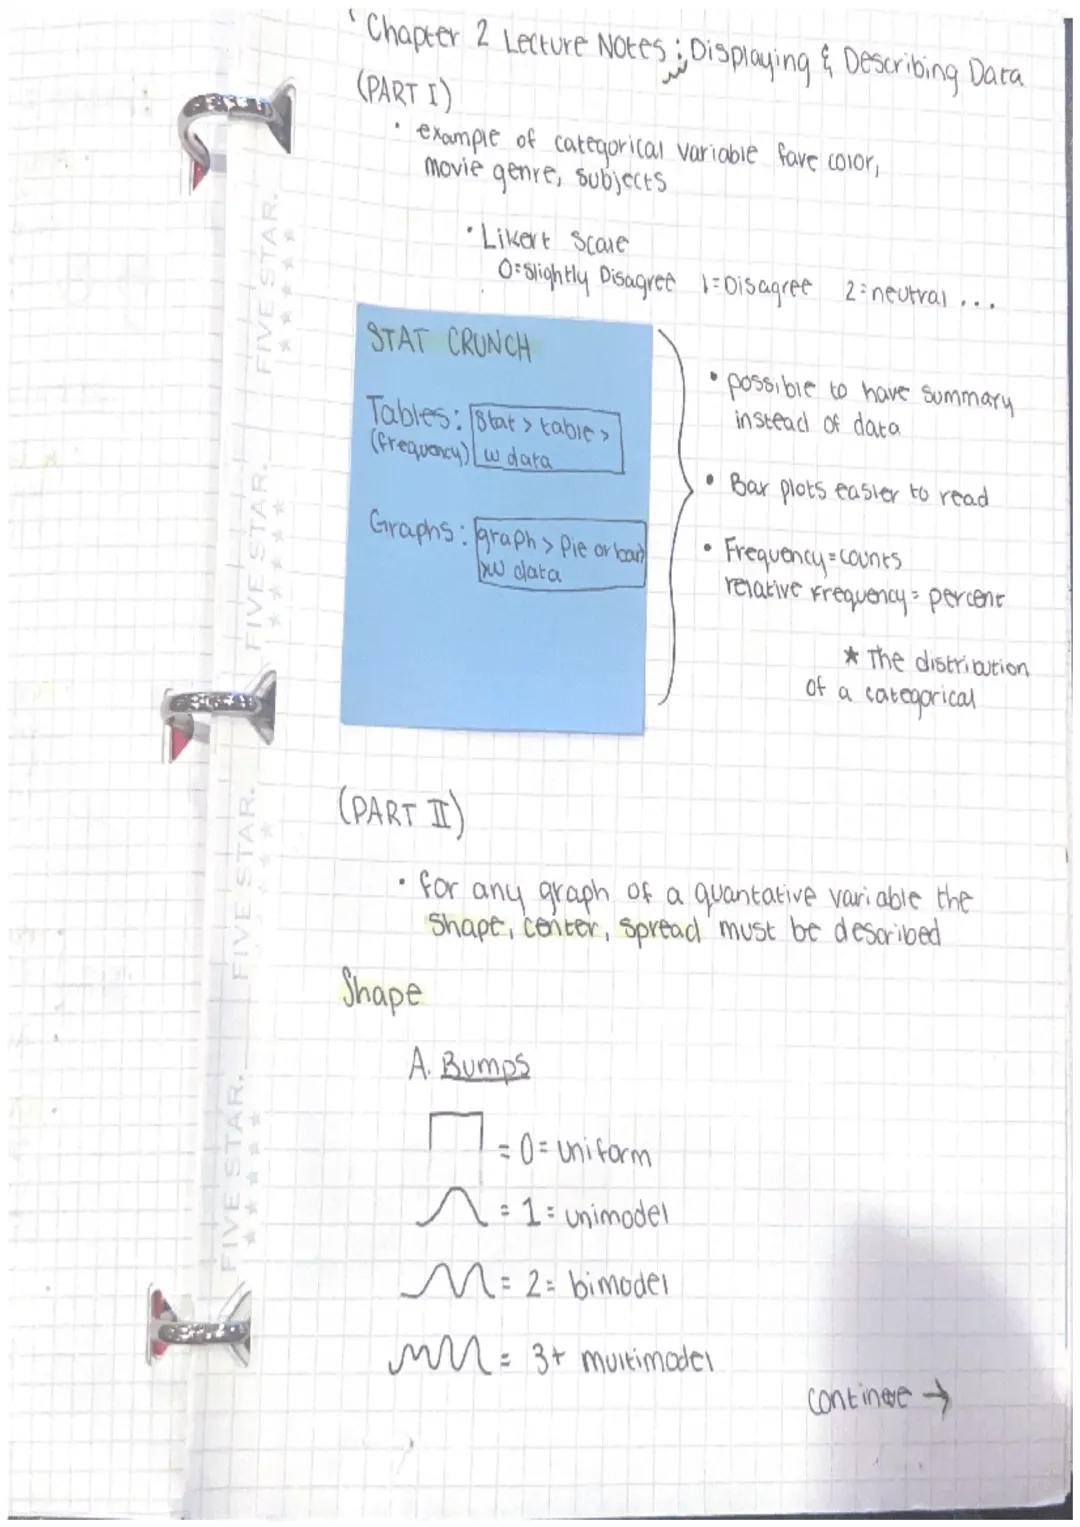 Chapter 2 Lecture Notes; Displaying & Describing Data
(PART I)
• example of categorical variable fave color,
movie genre, subjects
• Likert Scale
0=Slightly Disagree 1=Disagree 2=neutral ...
STAT CRUNCH
Tables: Stat > table >
(frequency) w data
Graphs: graph > Pie or bar
>w data
• possible to have summary
instead of data
• Bar plots easier to read
• Frequency=counts
relative frequency= percent
★ The distribution
of a categorical
(PART II)
• for any graph of a quantative variable the
Shape, center, spread must be described
Shape
A. Bumps
= 0= uniform
= 1= unimodel
= 2= bimodel
= 3+ multimodel
continue →
FIVE STAR.
FIVE STAR.
FIVE STAR.
FIVE STAR.